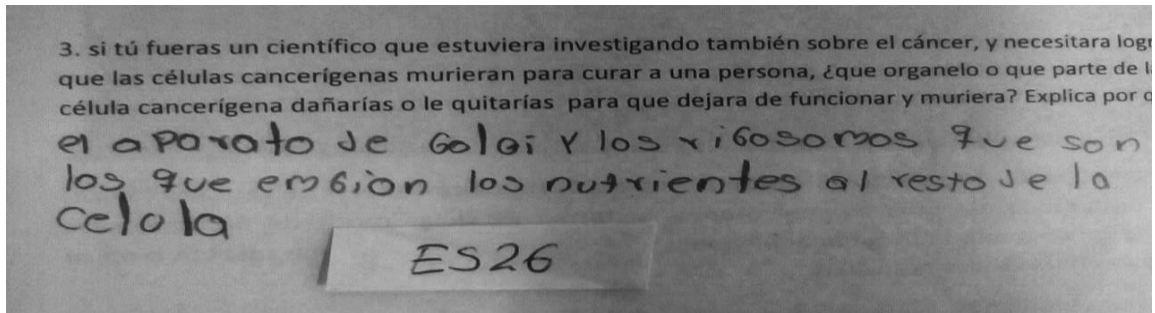 3. si tú fueras un científico que estuviera investigando también sobre el cáncer, y necesitara logr
que las células cancerígenas murieran para curar a una persona, ¿que organelo o que parte de l
célula cancerígena dañarías o le quitarías para que dejara de funcionar y muriera? Explica por q
el aparato de Golgi y los ribosomos que son
los que embion los nutrientes al resto de la
celula
ES26